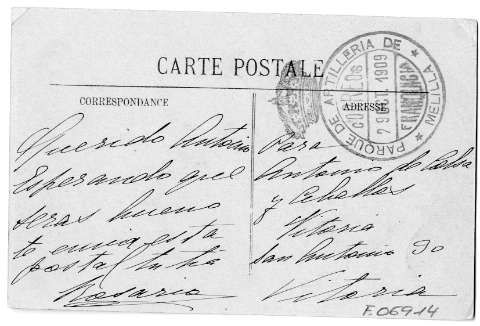 CARTE POSTALE
CORRESPONDANCE
ADRESSE
PARQUE DE ARTILLERIA DE MELILLA
CORREOS
1909
FRANQUICIA
Querido Antonio
Esperando que
seras bueno
te envia esta
postal tu tia
Rosario
Para
Antonio de
y Ceballos
Vitoria
San Antonio 30
Vitoria
F06914